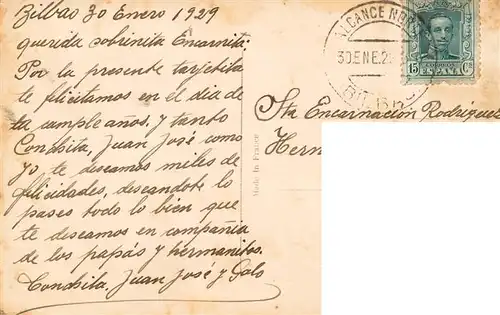 Bilbao 30 Enero 1929
querida sobrinita Encarnita:
Por la presente tarjetita
te felicitamos en el dia de
la cumpleaños, y tanto
Conchita, Juan José como
yo te deseamos miles de
felicidades, deseandote lo
pases todo lo bien que
te deseamos en compañia
de los papás y hermanitos.
Conchita, Juan José y Galo
Made in France
ALCANCE NOR
30 ENE. 2
BILBAO
15 CORREOS Cs
ESPAÑA
Sta Encarnación Rodriguez
Hern